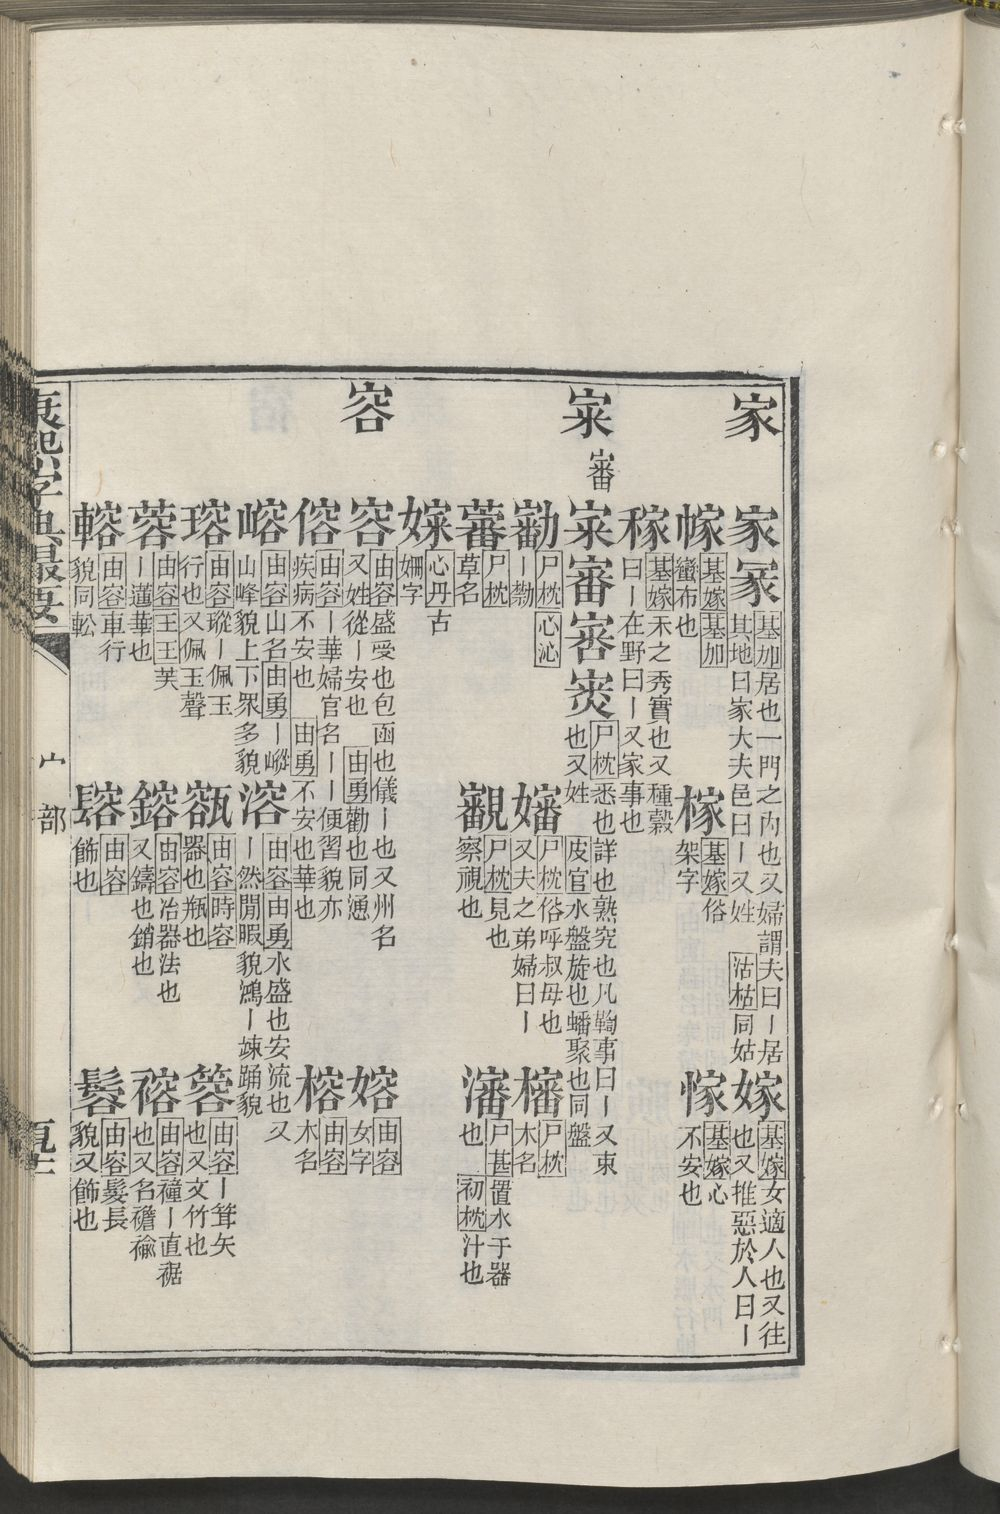 家
家冡基加居也一門之內也又婦謂夫曰丨居
其地曰家大夫邑曰丨又姓 沽枯同姑
嫁基嫁女適人也又往
也又推惡於人曰丨
幏基嫁基加
蠻布也
榢基嫁俗
架字
㤎基嫁心
不安也
稼基嫁禾之秀實也又種穀
曰丨在野曰丨又家事也
宷
審
宷審𡪢㝥尸枕悉也詳也熟究也凡鞫事曰丨又束
也又姓 皮官水盤旋也蟠聚也同盤
尸枕心沁
丨勬
嬸尸枕俗呼叔母也
又夫之弟婦曰丨
㰂尸枕
木名
蕃尸枕
草名
覾尸枕見也
察視也
瀋尸甚置水于器
也 初枕汁也
婇心丹古
姍字
容
容由容盛受也包函也儀丨也又州名
又姓從丨安也 由勇勸也同慂
嫆由容
女字
傛由容丨華婦官名丨丨便習貌亦
疾病不安也 由勇不安也華也
榕由容
木名
嵱由容山名由勇丨嵷
山峰貌上下眾多貌
溶由容由勇水盛也安流也又
丨然閒暇貌鴻丨竦踊貌
瑢由容瑽丨佩玉
行也又佩玉聲
㼸由容時容
器也瓶也
䈶由容丨箕矢
也又文竹也
蓉由容王王芙
丨蓮華也
鎔由容冶器法也
又鑄也銷也
褣由容䙱丨直裾
也又名襜褕
䡥由容車行
貌同䡆
䤾由容
飾也
鬙由容髮長
貌又飾也
康熙字典最要
宀部